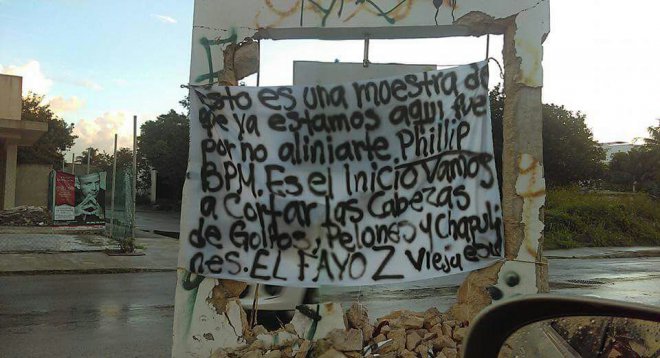 Esto es una moestra de
qe ya estamos aqui, fue
por no aliniarte. Phillip
BPM. Es el Inicio Vamos
a Cortar las Cabezas
de Golfos, Pelones y Chapuli
nes. EL FAYO Z Vieja escu